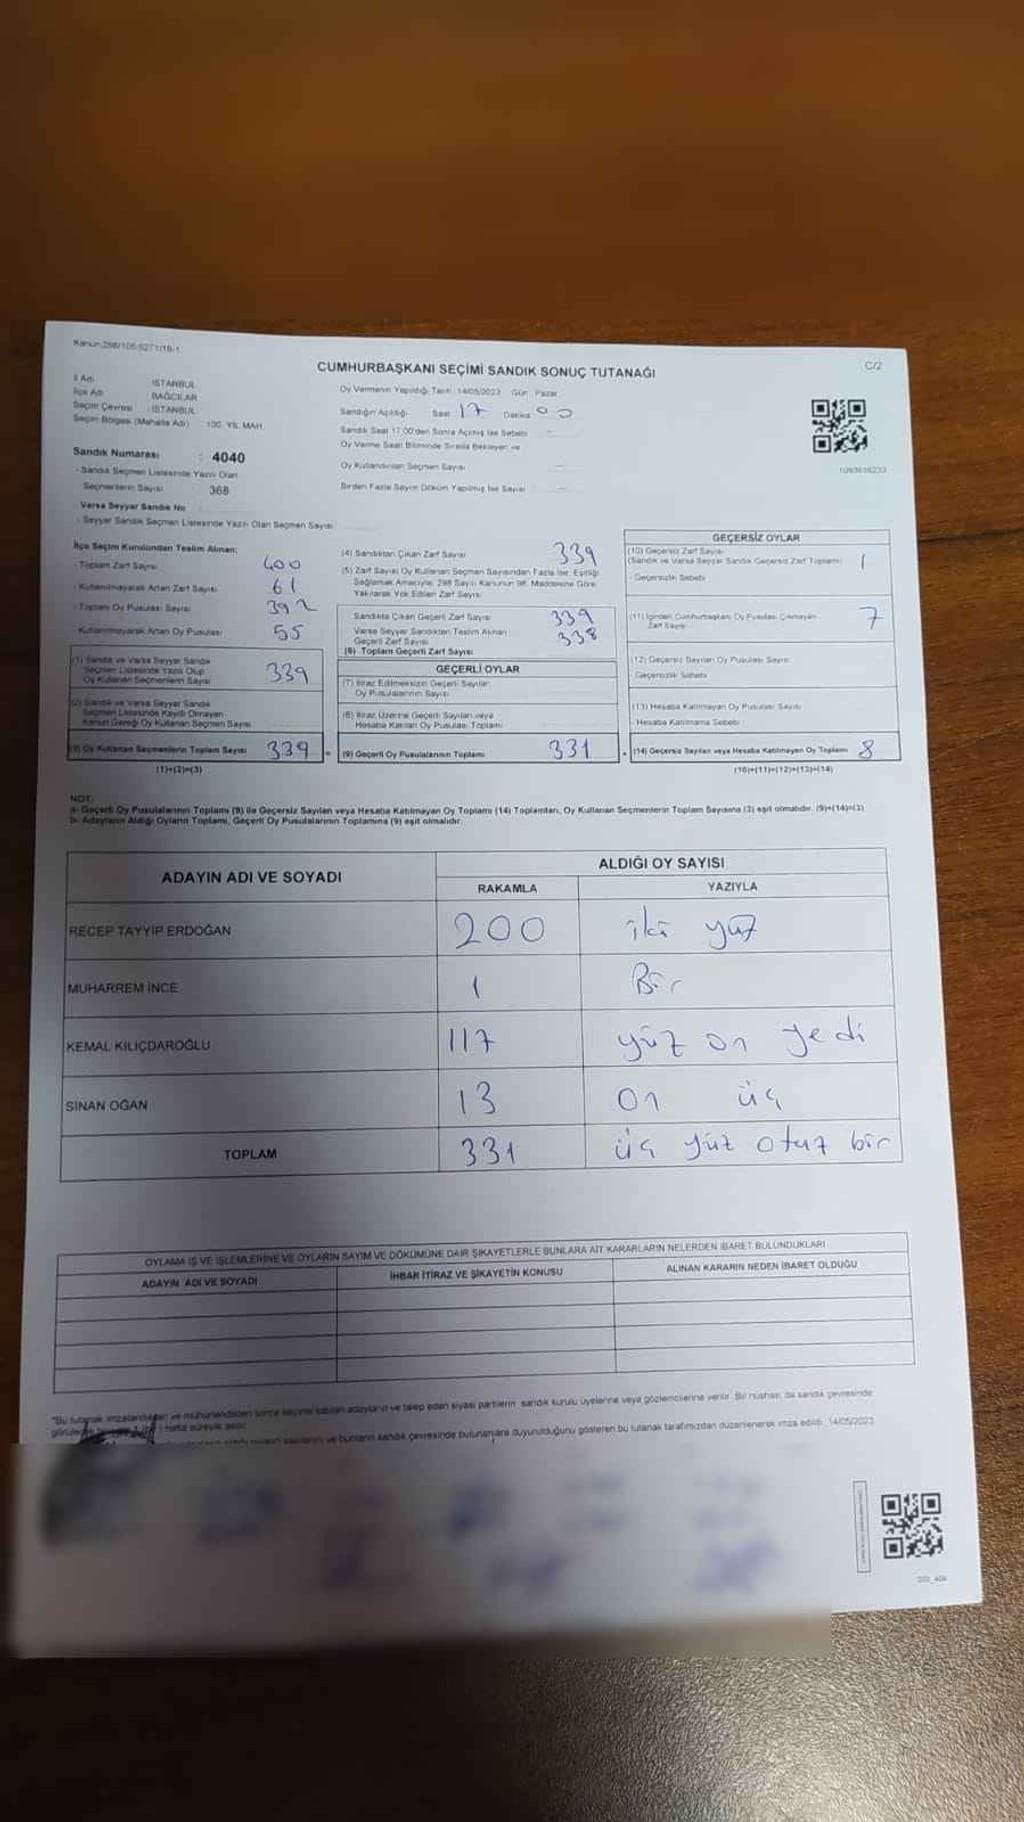 Kanun:298/105-6271/18-1
CUMHURBAŞKANI SEÇİMİ SANDIK SONUÇ TUTANAĞI
C/2
İl Adı : İSTANBUL
İlçe Adı : BAĞCILAR
Seçim Çevresi : İSTANBUL
Seçim Bölgesi (Mahalle Adı) : 100. YIL MAH.
Sandık Numarası : 4040
- Sandık Seçmen Listesinde Yazılı Olan
Seçmenlerin Sayısı 368
Varsa Seyyar Sandık No
- Seyyar Sandık Seçmen Listesinde Yazılı Olan Seçmen Sayısı
Oy Vermenin Yapıldığı Tarih : 14/05/2023 Gün : Pazar
Sandığın Açıldığı Saat 17 Dakika 00
Sandık Saat 17:00'den Sonra Açılmış İse Sebebi
Oy Verme Saati Bitiminde Sırada Bekleyen ve
Oy Kullandırılan Seçmen Sayısı
Birden Fazla Sayım Döküm Yapılmış İse Sayısı
1093616233
İlçe Seçim Kurulundan Teslim Alınan;
- Toplam Zarf Sayısı 400
- Kullanılmayarak Artan Zarf Sayısı 61
- Toplam Oy Pusulası Sayısı 392
Kullanılmayarak Artan Oy Pusulası 55
(1) Sandık ve Varsa Seyyar Sandık
Seçmen Listesinde Yazılı Olup
Oy Kullanan Seçmenlerin Sayısı 339
(2) Sandık ve Varsa Seyyar Sandık
Seçmen Listesinde Kayıtlı Olmayan
Kanun Gereği Oy Kullanan Seçmen Sayısı
(3) Oy Kullanan Seçmenlerin Toplam Sayısı 339
(1)+(2)=(3)
(4) Sandıktan Çıkan Zarf Sayısı 339
(5) Zarf Sayısı Oy Kullanan Seçmen Sayısından Fazla İse, Eşitliği
Sağlamak Amacıyla; 298 Sayılı Kanunun 98. Maddesine Göre
Yakılarak Yok Edilen Zarf Sayısı
Sandıkta Çıkan Geçerli Zarf Sayısı 339
Varsa Seyyar Sandıktan Teslim Alınan
Geçerli Zarf Sayısı 338
(6) Toplam Geçerli Zarf Sayısı
GEÇERLİ OYLAR
(7) İtiraz Edilmeksizin Geçerli Sayılan
Oy Pusulalarının Sayısı
(8) İtiraz Üzerine Geçerli Sayılan veya
Hesaba Katılan Oy Pusulası Toplamı
(9) Geçerli Oy Pusulalarının Toplamı 331
GEÇERSİZ OYLAR
(10) Geçersiz Zarf Sayısı
(Sandık ve Varsa Seyyar Sandık Geçersiz Zarf Toplamı) 1
- Geçersizlik Sebebi
(11) İçinden Cumhurbaşkanı Oy Pusulası Çıkmayan
Zarf Sayısı 7
(12) Geçersiz Sayılan Oy Pusulası Sayısı
- Geçersizlik Sebebi
(13) Hesaba Katılmayan Oy Pusulası Sayısı
- Hesaba Katılmama Sebebi
(14) Geçersiz Sayılan veya Hesaba Katılmayan Oy Toplamı 8
(10)+(11)+(12)+(13)=(14)
NOT:
a- Geçerli Oy Pusulalarının Toplamı (9) ile Geçersiz Sayılan veya Hesaba Katılmayan Oy Toplamı (14) Toplamları, Oy Kullanan Seçmenlerin Toplam Sayısına (3) eşit olmalıdır. (9)+(14)=(3)
b- Adayların Aldığı Oyların Toplamı, Geçerli Oy Pusulalarının Toplamına (9) eşit olmalıdır.
ADAYIN ADI VE SOYADI
ALDIĞI OY SAYISI
RAKAMLA YAZIYLA
RECEP TAYYİP ERDOĞAN 200 iki yüz
MUHARREM İNCE 1 Bir
KEMAL KILIÇDAROĞLU 117 yüz on yedi
SİNAN OĞAN 13 on üç
TOPLAM 331 üç yüz otuz bir
OYLAMA İŞ VE İŞLEMLERİNE VE OYLARIN SAYIM VE DÖKÜMÜNE DAİR ŞİKAYETLERLE BUNLARA AİT KARARLARIN NELERDEN İBARET BULUNDUKLARI
ADAYIN ADI VE SOYADI
İHBAR İTİRAZ VE ŞİKAYETİN KONUSU
ALINAN KARARIN NEDEN İBARET OLDUĞU
"Bu tutanak imzalandıktan ve mühürlendikten sonra seçime katılan adayların ve talep eden siyasi partilerin sandık kurulu üyelerine veya gözlemcilerine verilir. Bir nüshası da sandık çevresinde
hafta süreyle asılır.
ve bunların sandık çevresinde bulunanlara duyurulduğunu gösteren bu tutanak tarafımızdan düzenlenerek imza edildi. 14/05/2023